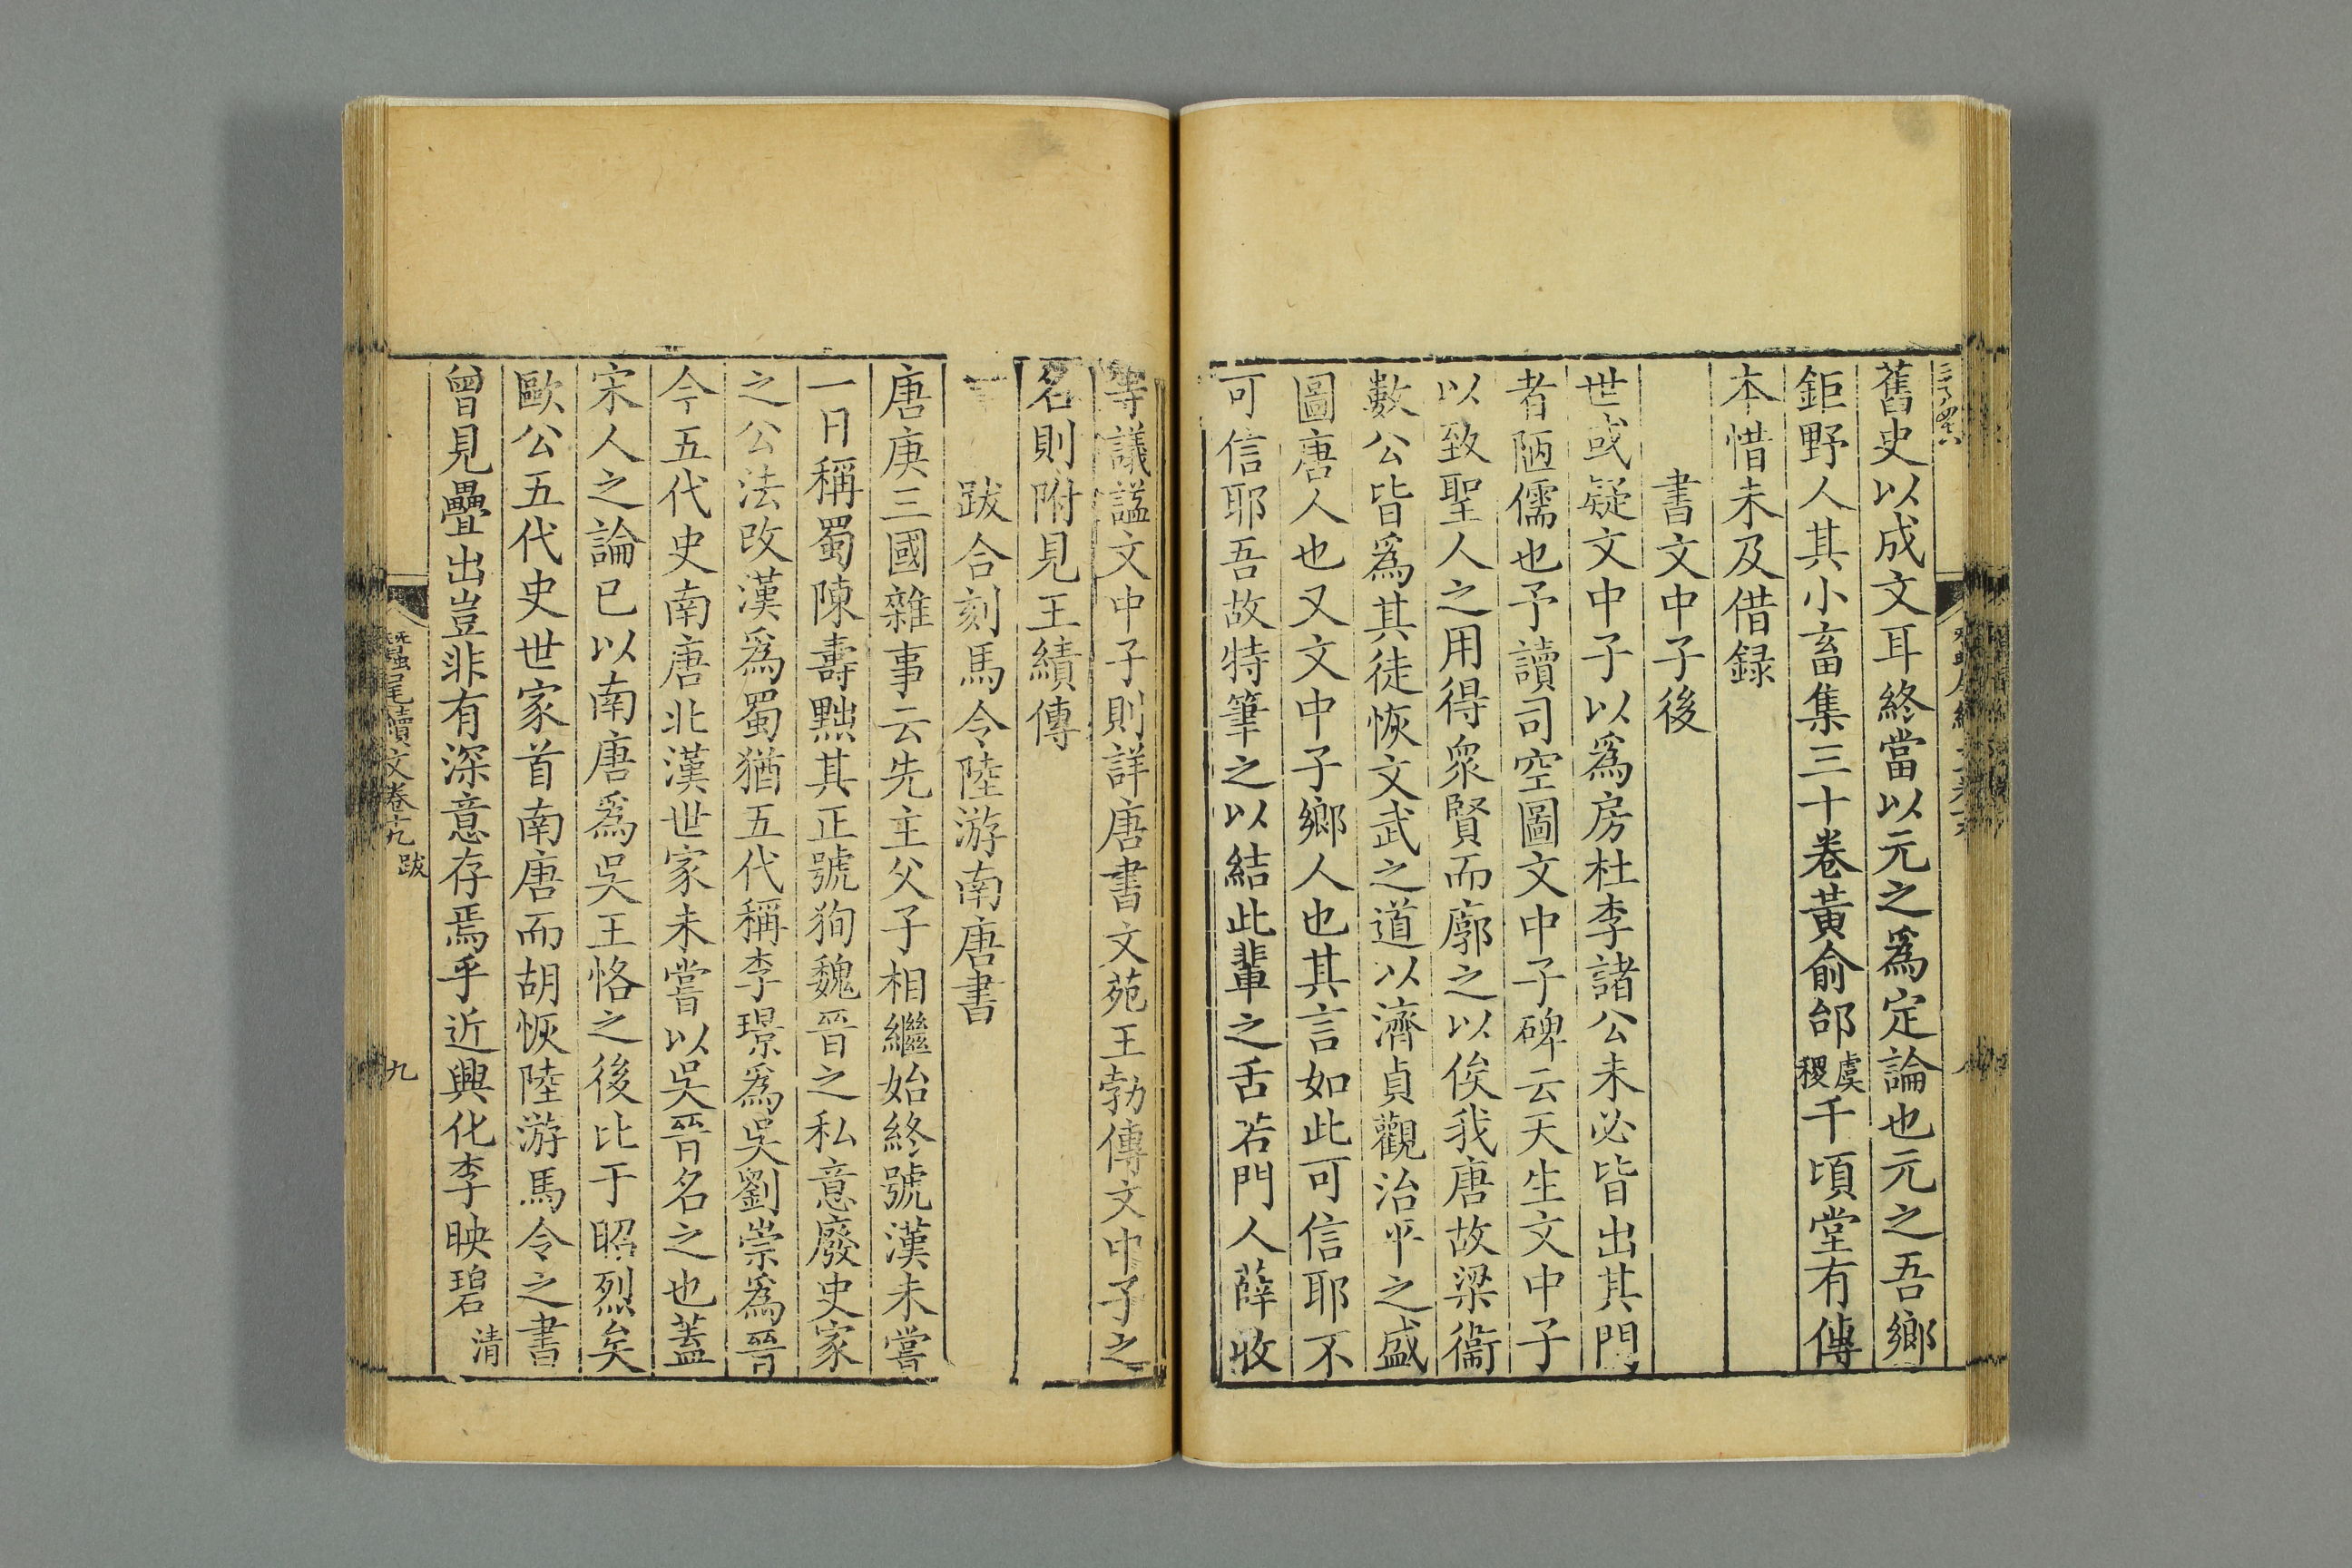 舊史以成文耳終當以元之爲定論也元之吾鄉
鉅野人其小畜集三十卷黃俞邰虞稷千頃堂有傳
本惜未及借録
書文中子後
世或疑文中子以爲房杜李諸公未必皆出其門
者陋儒也予讀司空圖文中子碑云天生文中子
以致聖人之用得衆賢而廓之以俟我唐故梁衞
數公皆爲其徒恢文武之道以濟貞觀治平之盛
圖唐人也又文中子鄉人也其言如此可信耶不
可信耶吾故特筆之以結此輩之舌若門人薛收
等議諡文中子則詳唐書文苑王勃傳文中子之
名則附見王績傳
跋合刻馬令陸游南唐書
唐庚三國雜事云先主父子相繼始終號漢未嘗
一日稱蜀陳壽黜其正號狥魏晉之私意廢史家
之公法改漢爲蜀猶五代稱李璟爲吳劉崇爲晉
今五代史南唐北漢世家未嘗以吳晉名之也蓋
宋人之論已以南唐爲吳王恪之後比于昭烈矣
歐公五代史世家首南唐而胡恢陸游馬令之書
曾見疊出豈非有深意存焉乎近興化李映碧清
蠶尾續文卷十九 跋
九